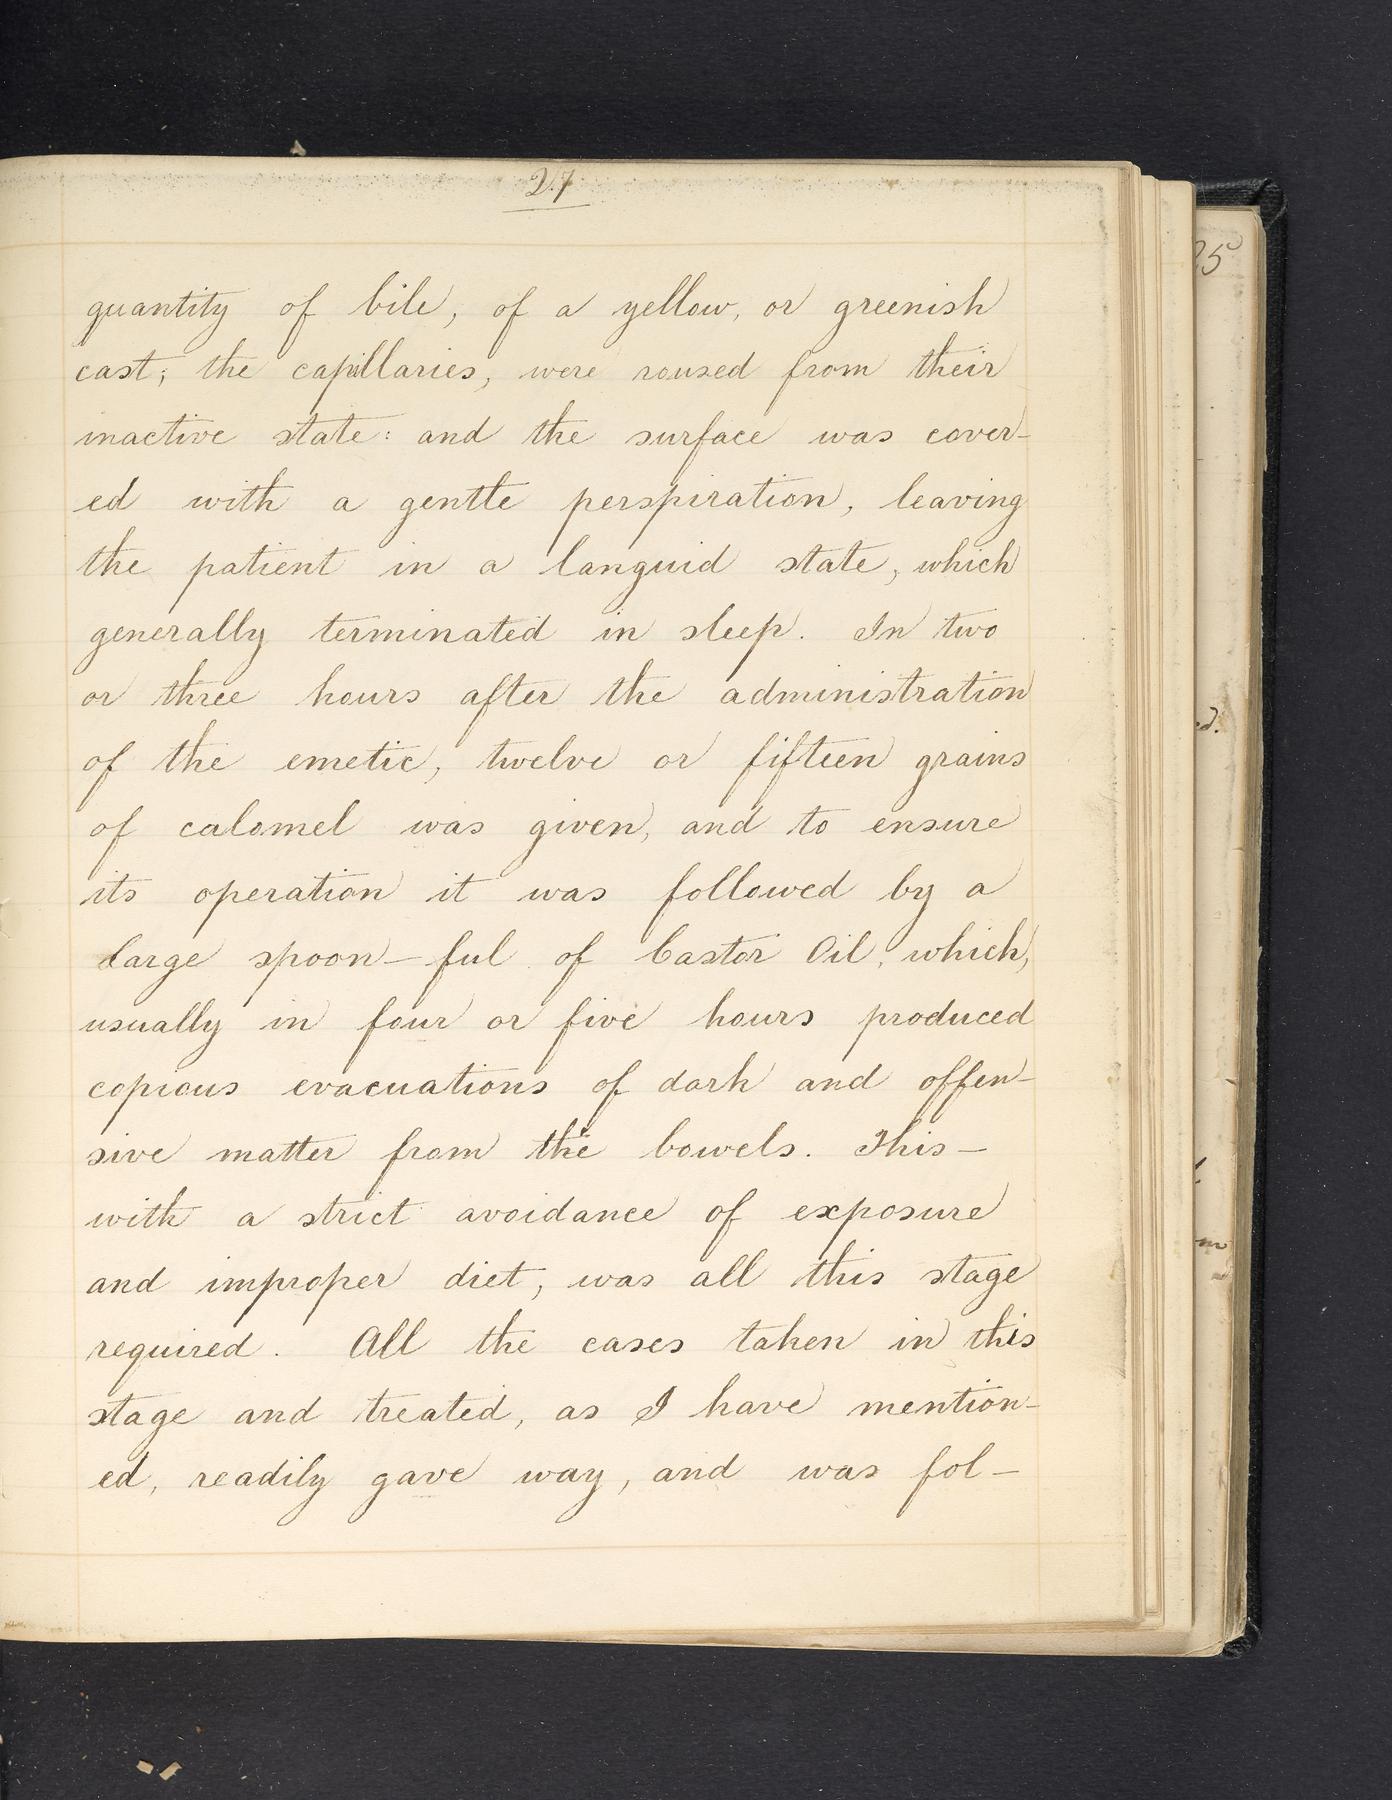 27
quantity of bile, of a yellow, or greenish
cast; the capillaries, were roused from their
inactive state: and the surface was cover-
ed with a gentle perspiration, leaving
the patient in a languid state, which
generally terminated in sleep. In two
or three hours after the administration
of the emetic, twelve or fifteen grains
of calomel was given, and to ensure
its operation it was followed by a
large spoon-ful of Castor Oil, which,
usually in four or five hours produced
copious evacuations of dark and offen-
sive matter from the bowels. This-
with a strict avoidance of exposure
and improper diet, was all this stage
required. All the cases taken in this
stage and treated, as I have mention-
ed, readily gave way, and was fol-